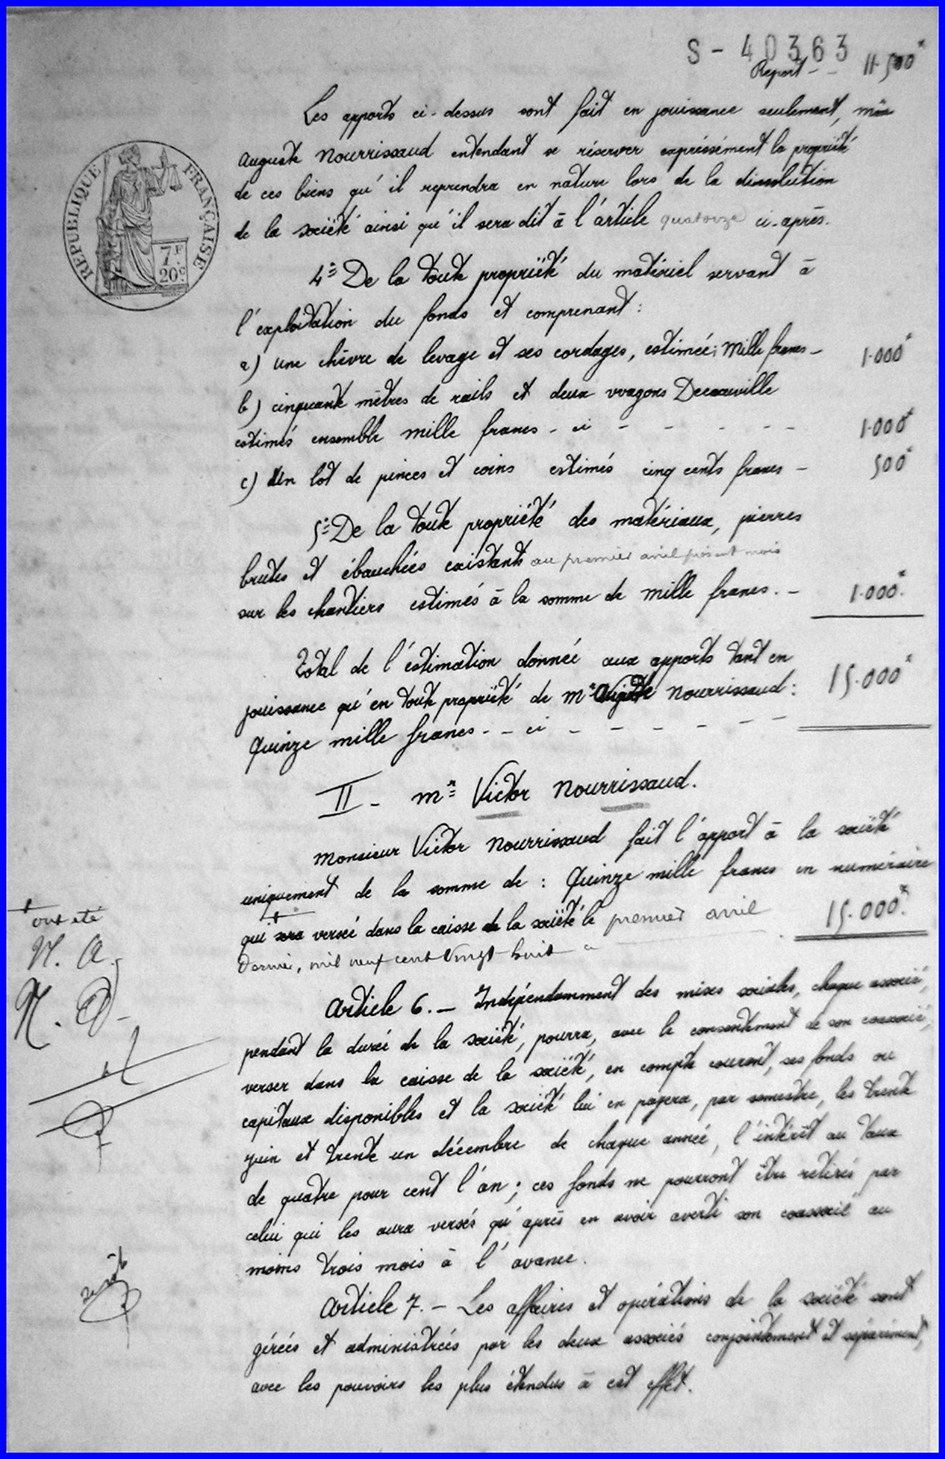 S - 40363
Report - - 11.500
Les apports ci-dessus sont fait en jouissance seulement, Mr
Auguste Nourrissaud entendant se réserver expressément la propriété
de ces biens qu'il reprendra en nature lors de la dissolution
de la société ainsi qu'il sera dit à l'article quatorze ci-après.
RÉPUBLIQUE FRANÇAISE
7F
20c
4° De la toute propriété du matériel servant à
l'exploitation du fonds et comprenant :
a) une chèvre de levage et ses cordages, estimée: Mille francs - 1.000
b) cinquante mètres de rails et deux wagons Decauville
estimés ensemble mille francs - ci - - - - - 1.000
c) Un lot de pinces et coins estimés cinq cents francs - 500
5° De la toute propriété des matériaux, pierres
brutes et ébauchées existants au premier avril présent mois
sur les chantiers estimés à la somme de mille francs. - 1.000.
Total de l'estimation donnée aux apports tant en
jouissance qu'en toute propriété de Mr Auguste Nourrissaud : 15.000
Quinze mille francs - - ci - - - - - -
II - Mr Victor Nourrissaud.
Monsieur Victor Nourrissaud fait l'apport à la société
uniquement de la somme de : Quinze mille francs en numéraire
qui sera versé dans la caisse de la société le premier avril 15.000.
dernier, mil neuf cent vingt huit
+ ont été
N. A.
N. V.
Article 6. - Indépendamment des mises sociales, chaque associé,
pendant la durée de la société, pourra, avec le consentement de son coassocié,
verser dans la caisse de la société, en compte courant, ses fonds ou
capitaux disponibles et la société lui en payera, par semestre, les trente
juin et trente un décembre de chaque année, l'intérêt au taux
de quatre pour cent l'an ; ces fonds ne pourront être retirés par
celui qui les aura versés qu'après en avoir averti son coassocié au
moins trois mois à l'avance.
Article 7. - Les affaires et opérations de la société sont
gérées et administrées par les deux associés conjointement et séparément,
avec les pouvoirs les plus étendus à cet effet.